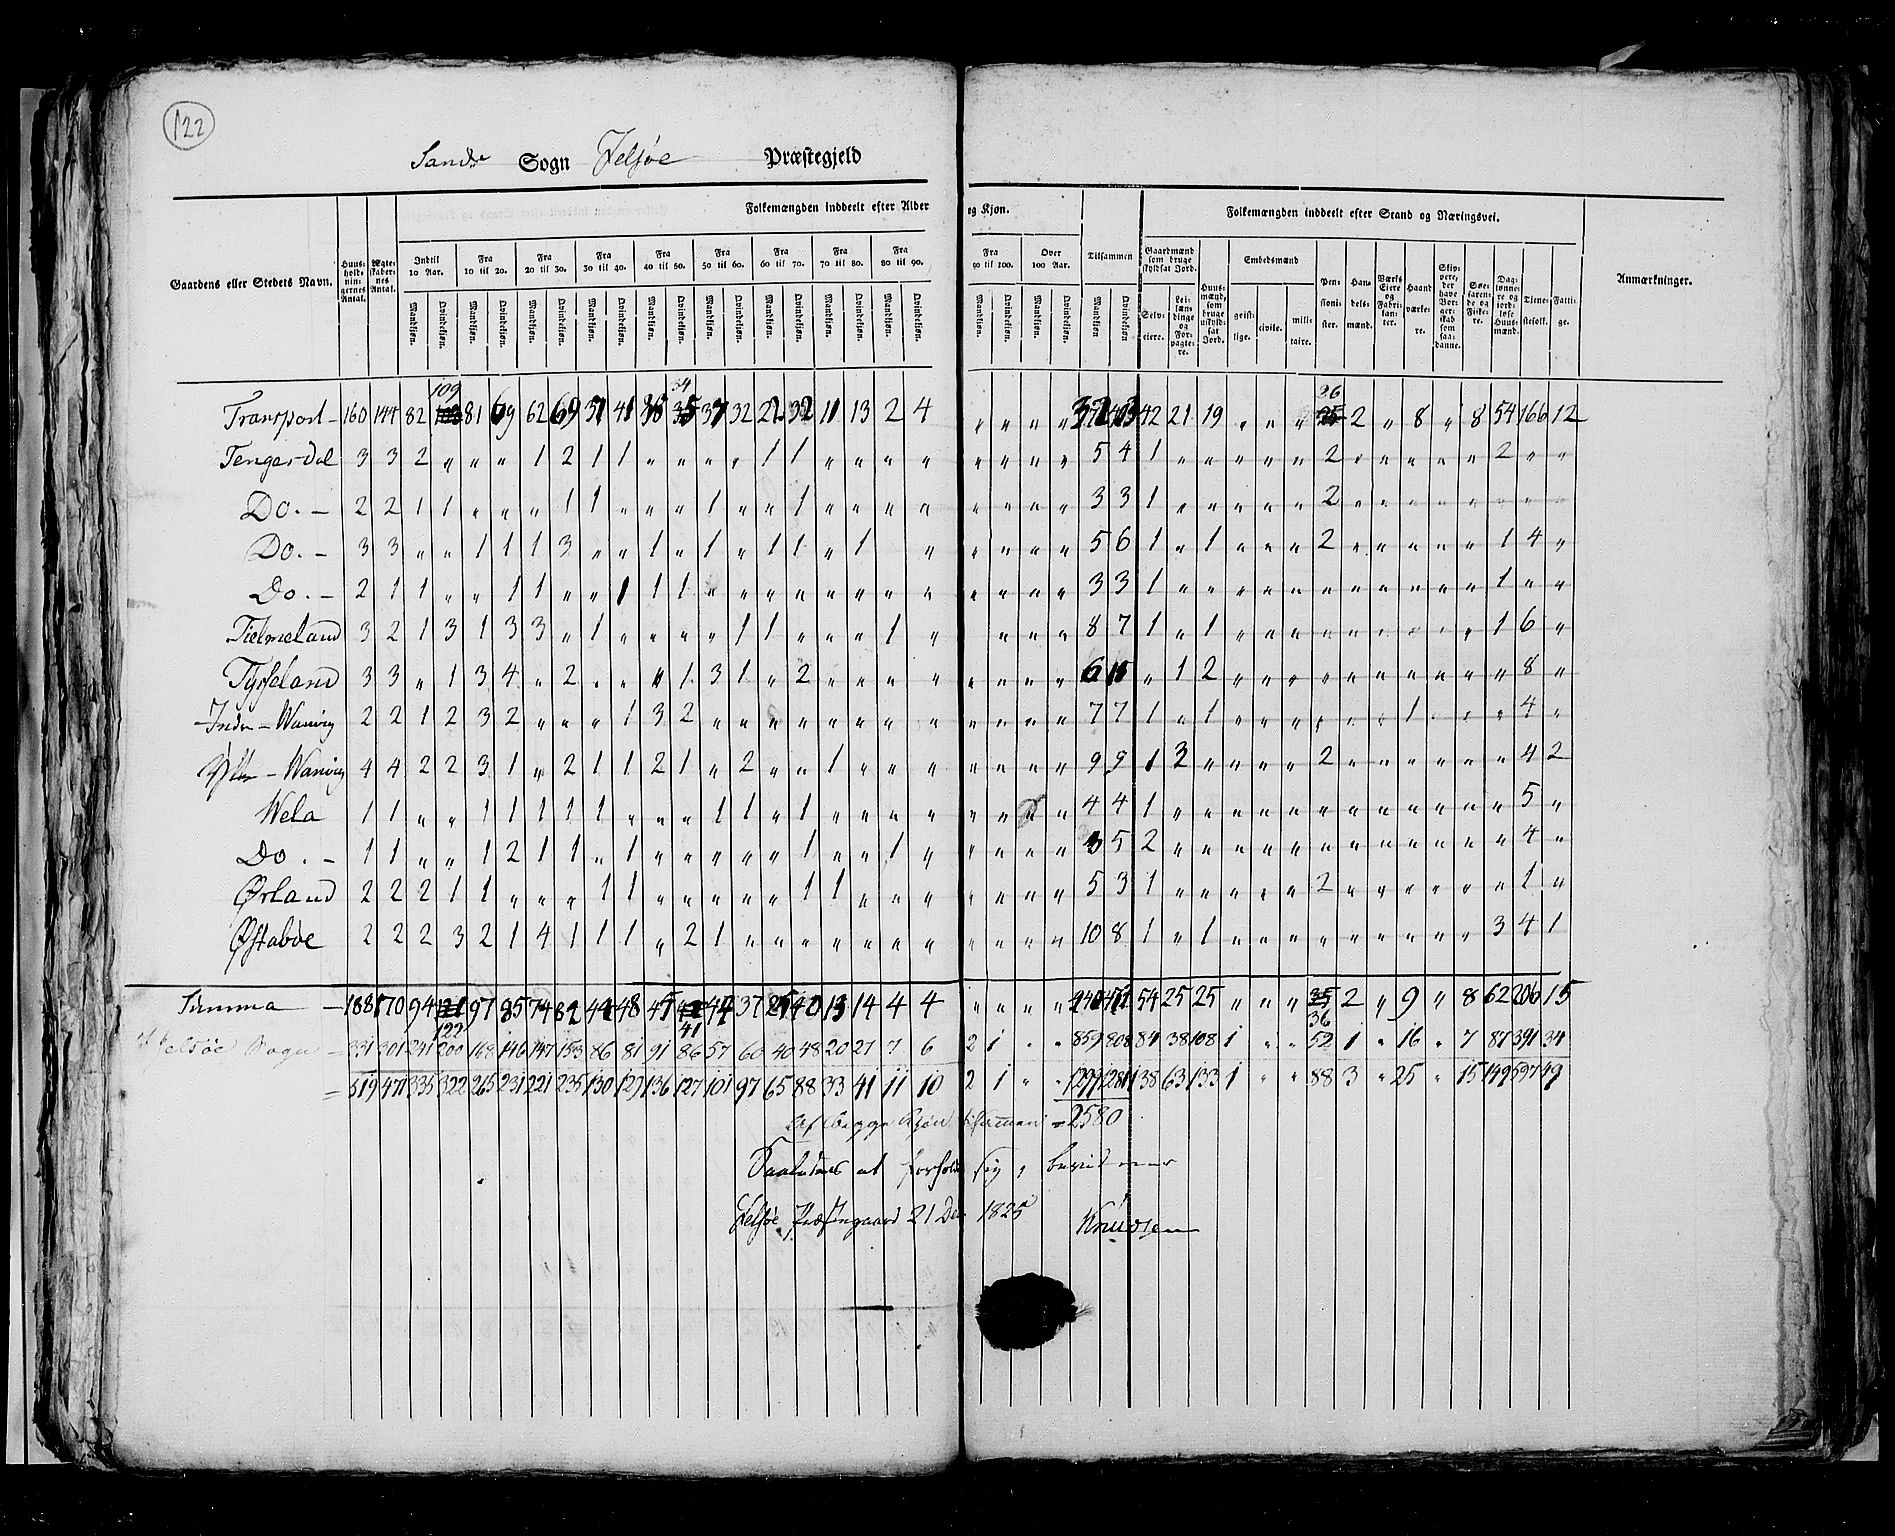 122
Sands Sogn Jelsøe Præstegjeld
Gaardens eller Stedets Navn.
Huusholdningernes Antal.
Ægteskabernes Antal.
Folkemængden inddeelt efter Alder og Kjøn.
Indtil 10 Aar. Fra 10 til 20. Fra 20 til 30. Fra 30 til 40. Fra 40 til 50. Fra 50 til 60. Fra 60 til 70. Fra 70 til 80. Fra 80 til 90. Fra 90 til 100. Over 100 Aar. Tilsammen
Mandkjøn. Qvindekjøn.
Folkemængden inddeelt efter Stand og Næringsvei.
Gaardmænd som bruge skyldsat Jord.
Selveiere. Leilændinge og Forpagtere.
Huusmænd, som bruge uskyldsat Jord.
Embedsmænd
geistlige. civile. militaire.
Pensionister. Handelsmænd. Værks Eiere og Fabrikanter. Haandværkere. Skippere, der have Borgerskab som saadanne. Søefarende og Fiskere. Dagleønnere og jordløse Huusmænd. Tjenestefolk. Fattige.
Anmærkninger.
Transport - 160 144 82 109 81 69 62 69 51 41 34 37 32 22 32 11 13 2 4 " " " " 42 21 19 " " " 26 2 " 8 " 8 54 166 12
Tengesdal 3 3 2 " " " 1 2 1 1 " " " " 1 1 " " " " " " " " 5 4 1 " " " " " 2 " " " " " 2 " "
Do. - 2 2 1 1 " " " 1 1 " " " 1 " " 1 " " " " " " " " 3 3 1 " " " " " 2 " " " " " " " "
Do. - 3 3 " " 1 1 1 3 " " 1 " 1 " 1 1 " 1 " " " " " 5 6 1 " 1 " " " 2 " " " " " 1 4 "
Do. - 2 1 1 " " 1 1 " " 1 1 1 " " " " " " " " " " " " 3 3 1 " " " " " " " " " " " 1 " "
Tielmeland 3 2 1 3 1 3 3 " 1 " " " " 1 1 " " " 1 " " " " 8 7 1 " 1 " " " " " " " " " 1 6 "
Tysseland 3 3 " 1 3 4 " 2 " " " 1 3 1 " 2 " " " " " " " " 6 " 1 2 " " " " " " " " " " 8 "
Indre - Wanvig 2 2 1 2 3 2 " " " 1 3 2 " " " " " " " " " " " " 7 7 1 " 1 " " " " " " 1 " " " 4 "
Yttre - Wanvig 4 4 2 2 3 1 " 2 1 1 2 1 " 2 " " 1 " " " " " " " 9 9 1 2 " " " " 2 " " " " " " 4 2
Wela 1 1 " " 1 1 1 1 1 " " " 1 1 " 1 " " " " " " " 4 4 1 " " " " " " " " " " " " 5 "
Do. - 1 1 " " 1 2 1 1 " 1 " " " " " 1 " " 1 " " " " " 5 2 " " " " " " " " " " " " 4 "
Ørland 2 2 2 1 1 " " " 1 1 " " " " " 1 1 " " " " " " " 5 3 1 " " " " " 2 " " " " " " 1 "
Østabøe 2 2 2 3 2 1 4 1 1 1 " 2 1 " " " " " " " " " " " 10 8 1 " 1 " " " " " " " " " 3 4 1
Summa - 188 170 94 122 97 85 74 82 44 48 45 41 44 37 25 40 13 14 4 4 " " " " 440 54 25 25 " " " 36 2 " 9 " 8 62 206 15
Jelsøe Sogn = 331 301 241 200 168 146 147 153 86 81 91 86 57 60 40 48 20 27 7 6 2 1 " " 859 808 84 38 108 1 " " 52 1 " 16 " 7 87 391 34
= 519 471 335 322 265 231 221 235 130 129 136 127 101 97 65 88 33 41 11 10 2 1 " " 1299 1281 138 63 133 1 " " 88 3 " 25 " 15 149 597 49
Af begge Kjøn tilsammen = 2580
Saaledes at forholde sig, bevidner
Jelsøe Præstegaard 21 Dec 1825 Knudsen